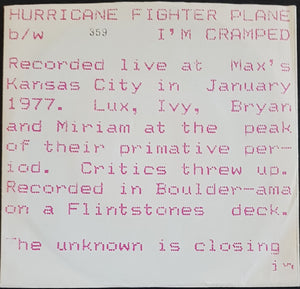 HURRICANE FIGHTER PLANE
b/w 359 I'M CRAMPED
Recorded live at Max's
Kansas City in January
1977. Lux, Ivy, Bryan
and Miriam at the peak
of their primative per-
iod. Critics threw up.
Recorded in Boulder-ama
on a Flintstones deck.
The unknown is closing
in